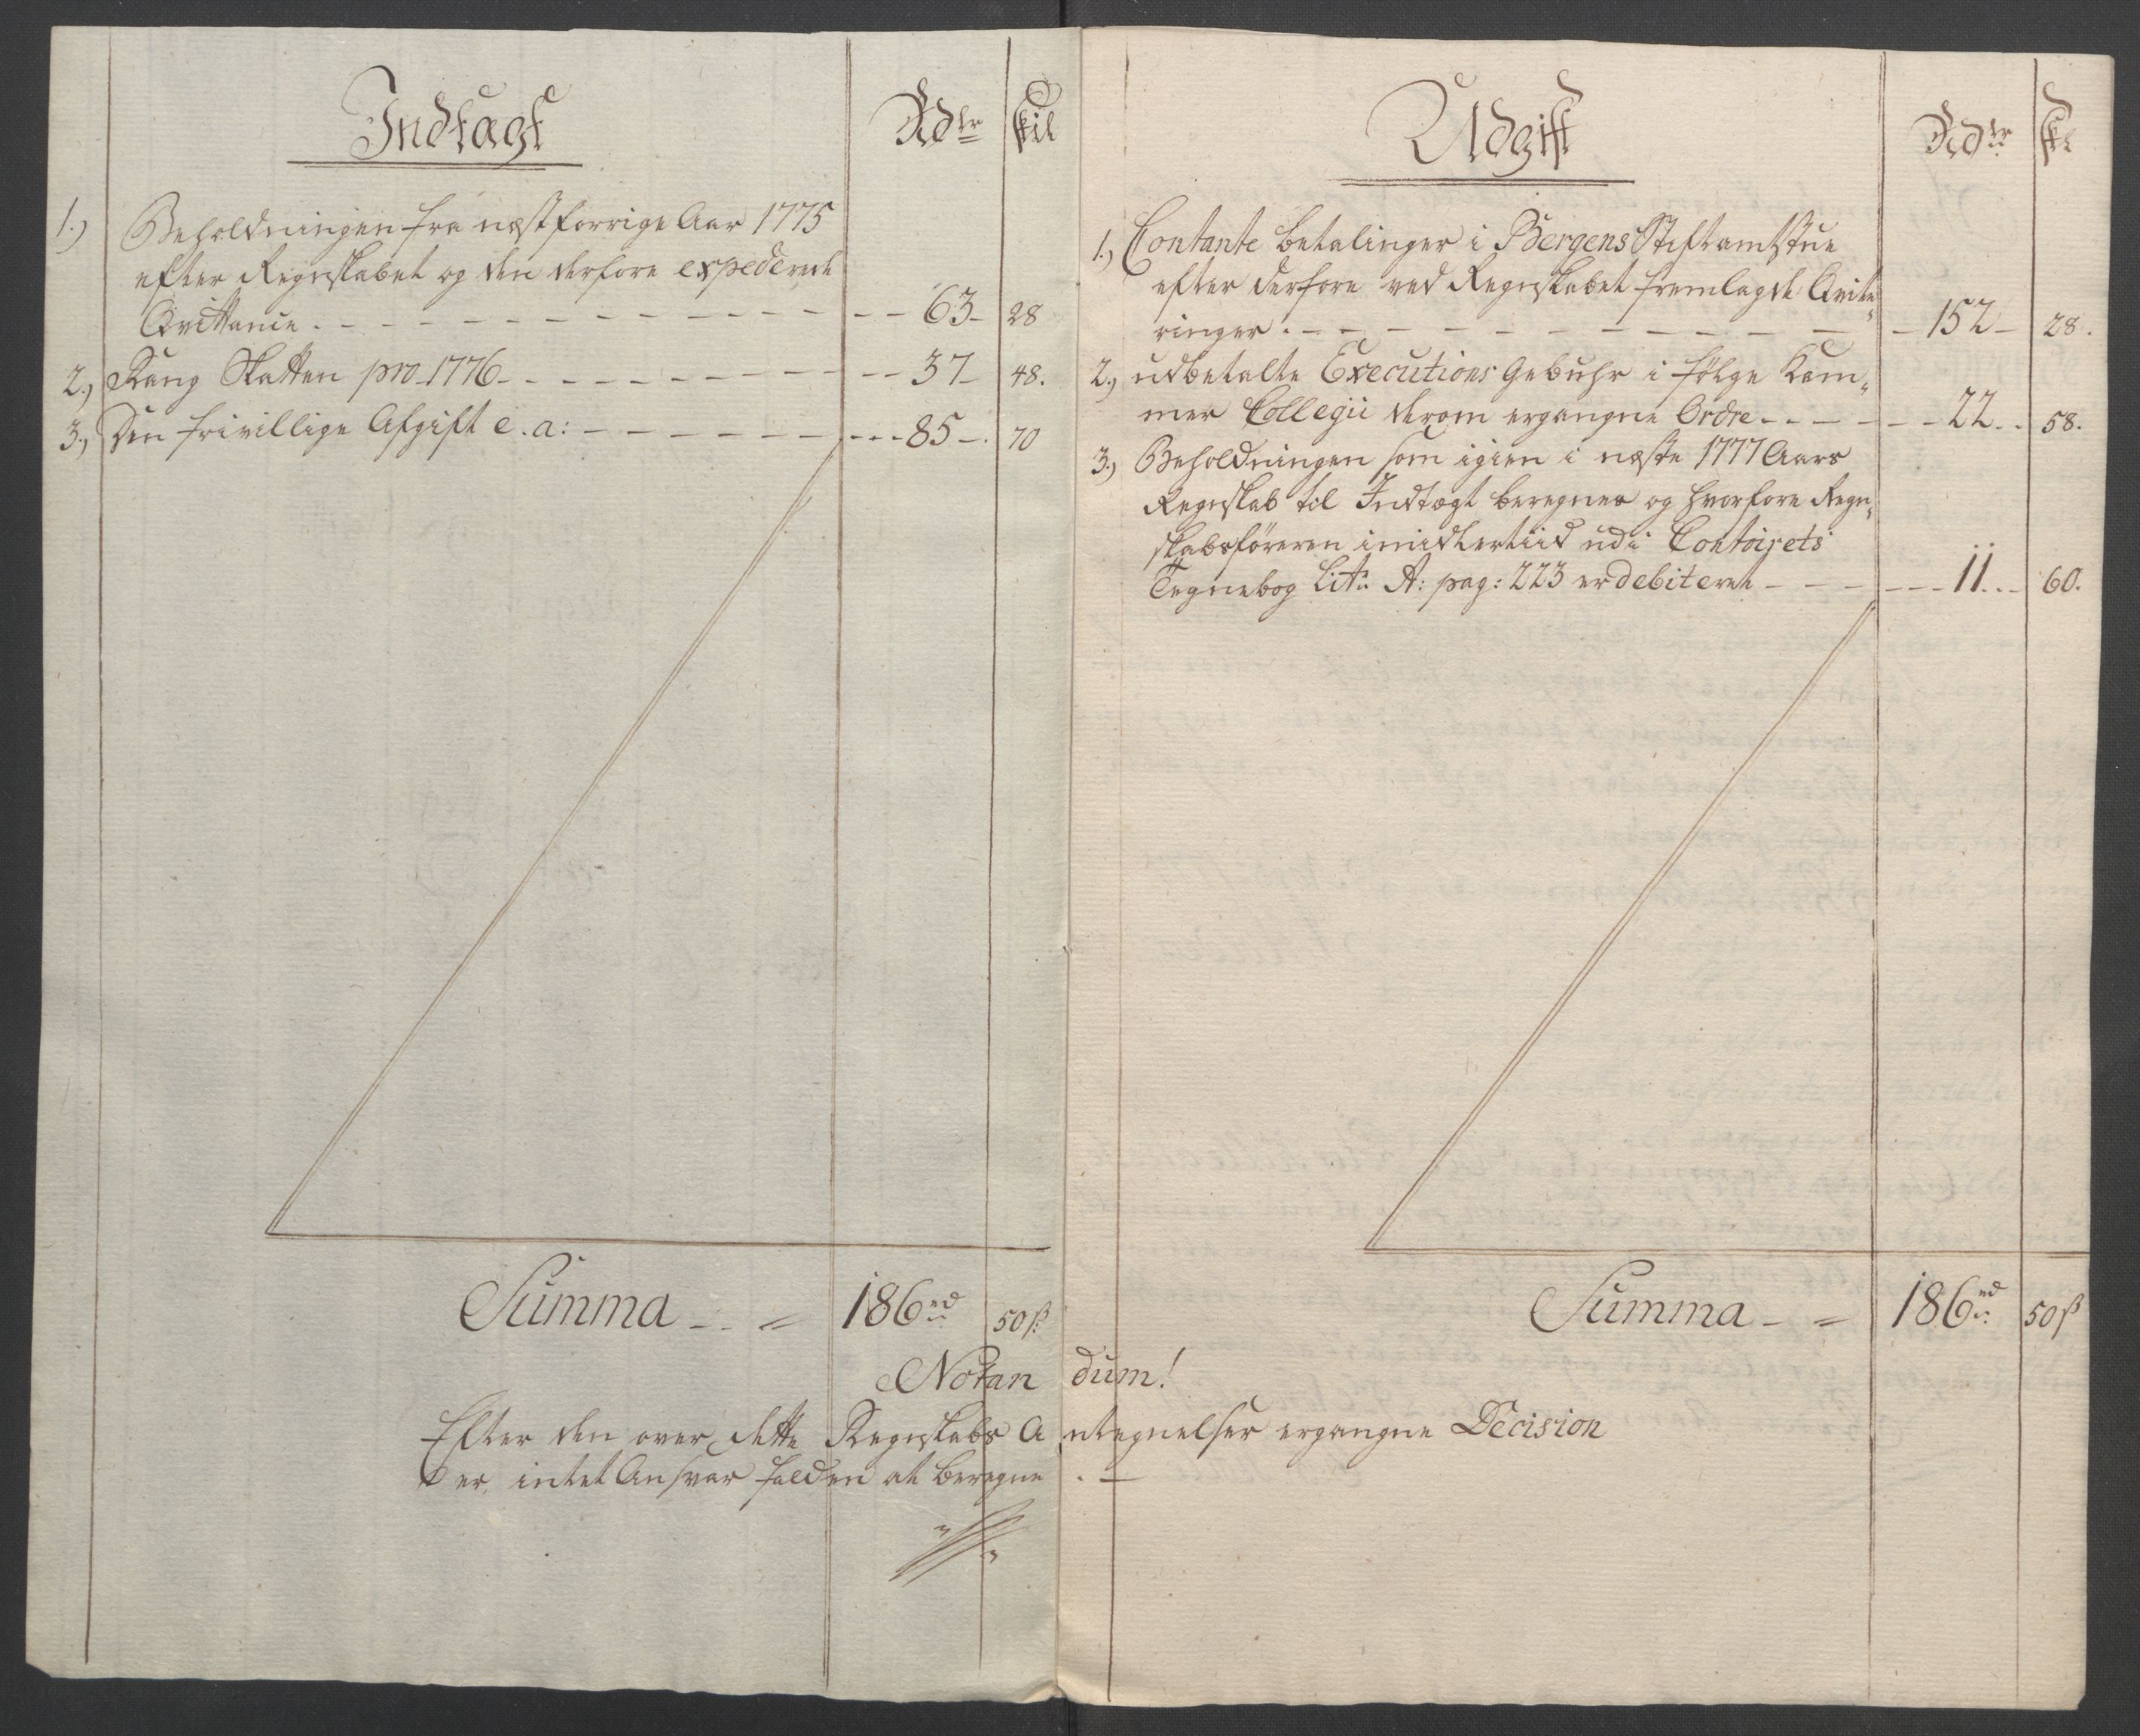 Indtægt
Rdlr
skil
1.) Beholdningen fra næstforrige Aar 1775
efter Regnskabet og den derfore expederede
Qvittance . - - - 63 - 28
2.) Rang Skatten pro 1776 - - - 37 - 48.
3.) Den frivillige Afgift e. a: - - - 85 - 70
Summa - - = 186 rd 50 ß
Udgift
Rdlr
skl
1.) Contante betalinger i Bergens Stiftamtstue
efter derfore ved Regnskabet fremlagde Qvite„
ringer . - - - 152 - 28.
2.) udbetalte Executions Gebuhr i følge Kam„
mer Collegii derom ergangne Ordre - - - 22 . . 58.
3.) Beholdningen som igien i næste 1777 Aars
Regnskab til Indtægt beregnes og hvorfore Regn„
skabsføreren imidlertiid udi Contoirets
Tegnebog Litr: A: pag: 223 er debiteret - - - 11 . . 60.
Summa - = 186 rd 50 ß
Notandum!
Efter den over dette Regnskabs Antegnelser ergangne Decision
er intet Ansvar falden at beregne . —